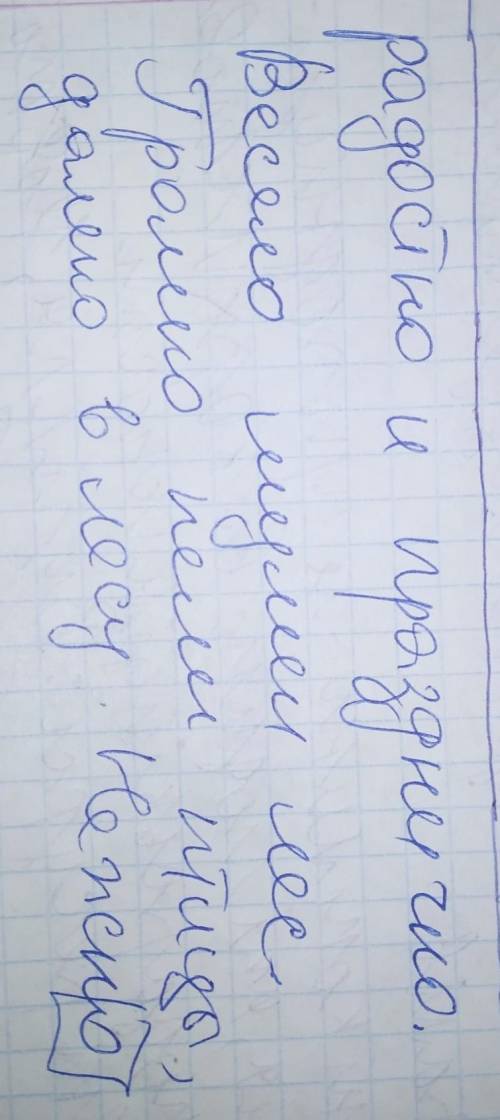 радостно и празднично.
Весело шумел лес.
Громко пели птицы,
далеко в лесу. Нежно